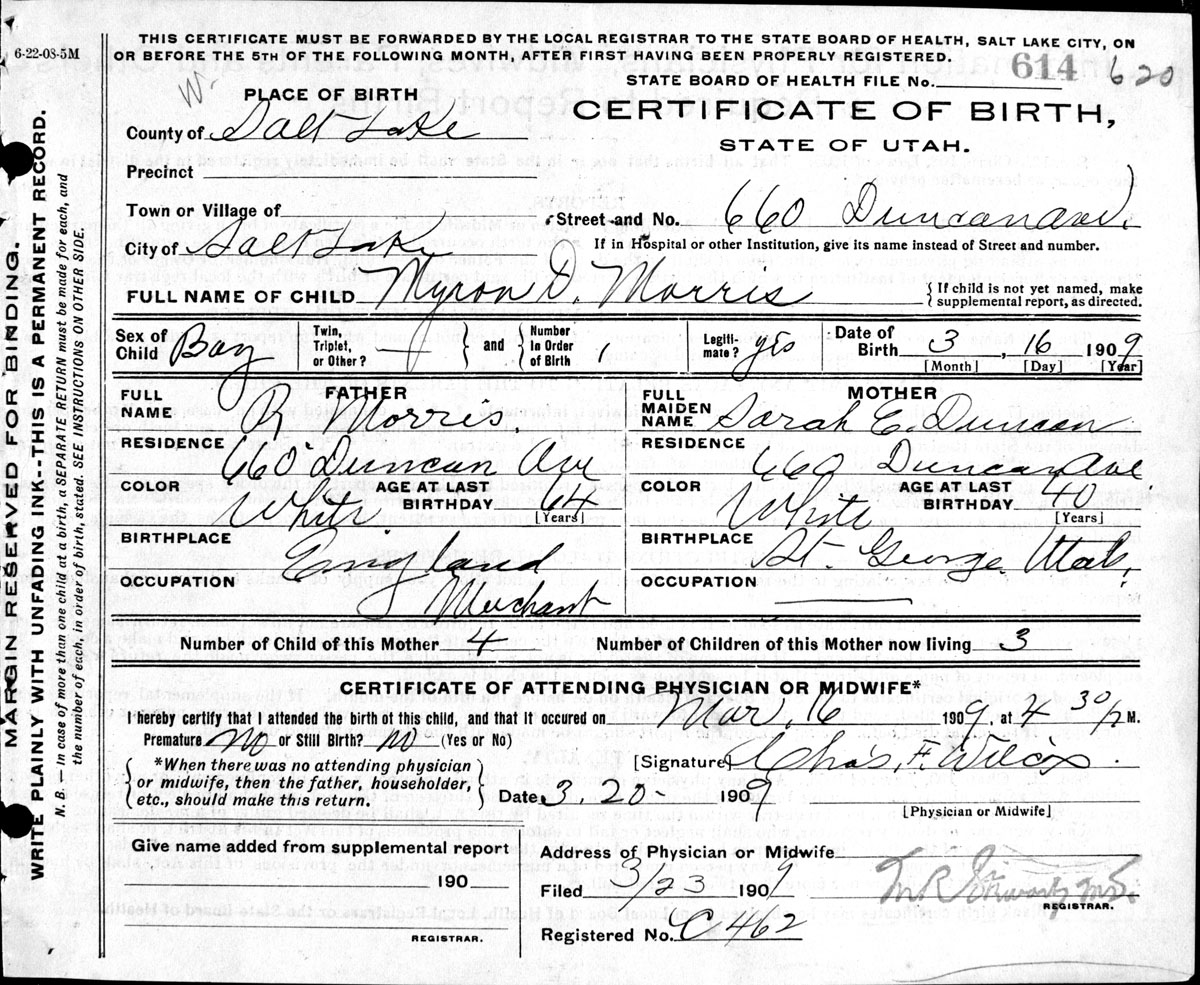 6-22-08-5M
THIS CERTIFICATE MUST BE FORWARDED BY THE LOCAL REGISTRAR TO THE STATE BOARD OF HEALTH, SALT LAKE CITY, ON
OR BEFORE THE 5TH OF THE FOLLOWING MONTH, AFTER FIRST HAVING BEEN PROPERLY REGISTERED.
STATE BOARD OF HEALTH FILE No. 614 620
W.
PLACE OF BIRTH
CERTIFICATE OF BIRTH,
STATE OF UTAH.
County of Salt Lake
Precinct
Town or Village of
Street and No. 660 Duncan Ave.
City of Salt Lake
If in Hospital or other Institution, give its name instead of Street and number.
FULL NAME OF CHILD Myron D. Morris
If child is not yet named, make
supplemental report, as directed.
Sex of
Child Boy
Twin,
Triplet,
or Other?
and
Number
in Order
of Birth
Legiti-
mate? yes
Date of
Birth 3 16 1909
[Month] [Day] [Year]
FATHER
FULL
NAME R Morris.
RESIDENCE 660 Duncan Ave
COLOR White.
AGE AT LAST
BIRTHDAY 64
[Years]
BIRTHPLACE England
OCCUPATION Merchant
MOTHER
FULL
MAIDEN
NAME Sarah E. Duncan
RESIDENCE 660 Duncan Ave
COLOR White
AGE AT LAST
BIRTHDAY 40
[Years]
BIRTHPLACE St. George Utah.
OCCUPATION
Number of Child of this Mother 4
Number of Children of this Mother now living 3
CERTIFICATE OF ATTENDING PHYSICIAN OR MIDWIFE*
I hereby certify that I attended the birth of this child, and that it occured on Mar. 16 1909, at 4 30 P M.
Premature No or Still Birth? No (Yes or No)
[Signature] Chas. F. Wilcox.
*When there was no attending physician
or midwife, then the father, householder,
etc., should make this return.
Date 3.20- 1909
[Physician or Midwife]
Give name added from supplemental report
190
REGISTRAR.
Address of Physician or Midwife
Filed 3/23 1909
M.R. Stewart M.D.
REGISTRAR.
Registered No. C 462
MARGIN RESERVED FOR BINDING.
WRITE PLAINLY WITH UNFADING INK--THIS IS A PERMANENT RECORD.
N. B.—In case of more than one child at a birth, a SEPARATE RETURN must be made for each, and
the number of each, in order of birth, stated. SEE INSTRUCTIONS ON OTHER SIDE.